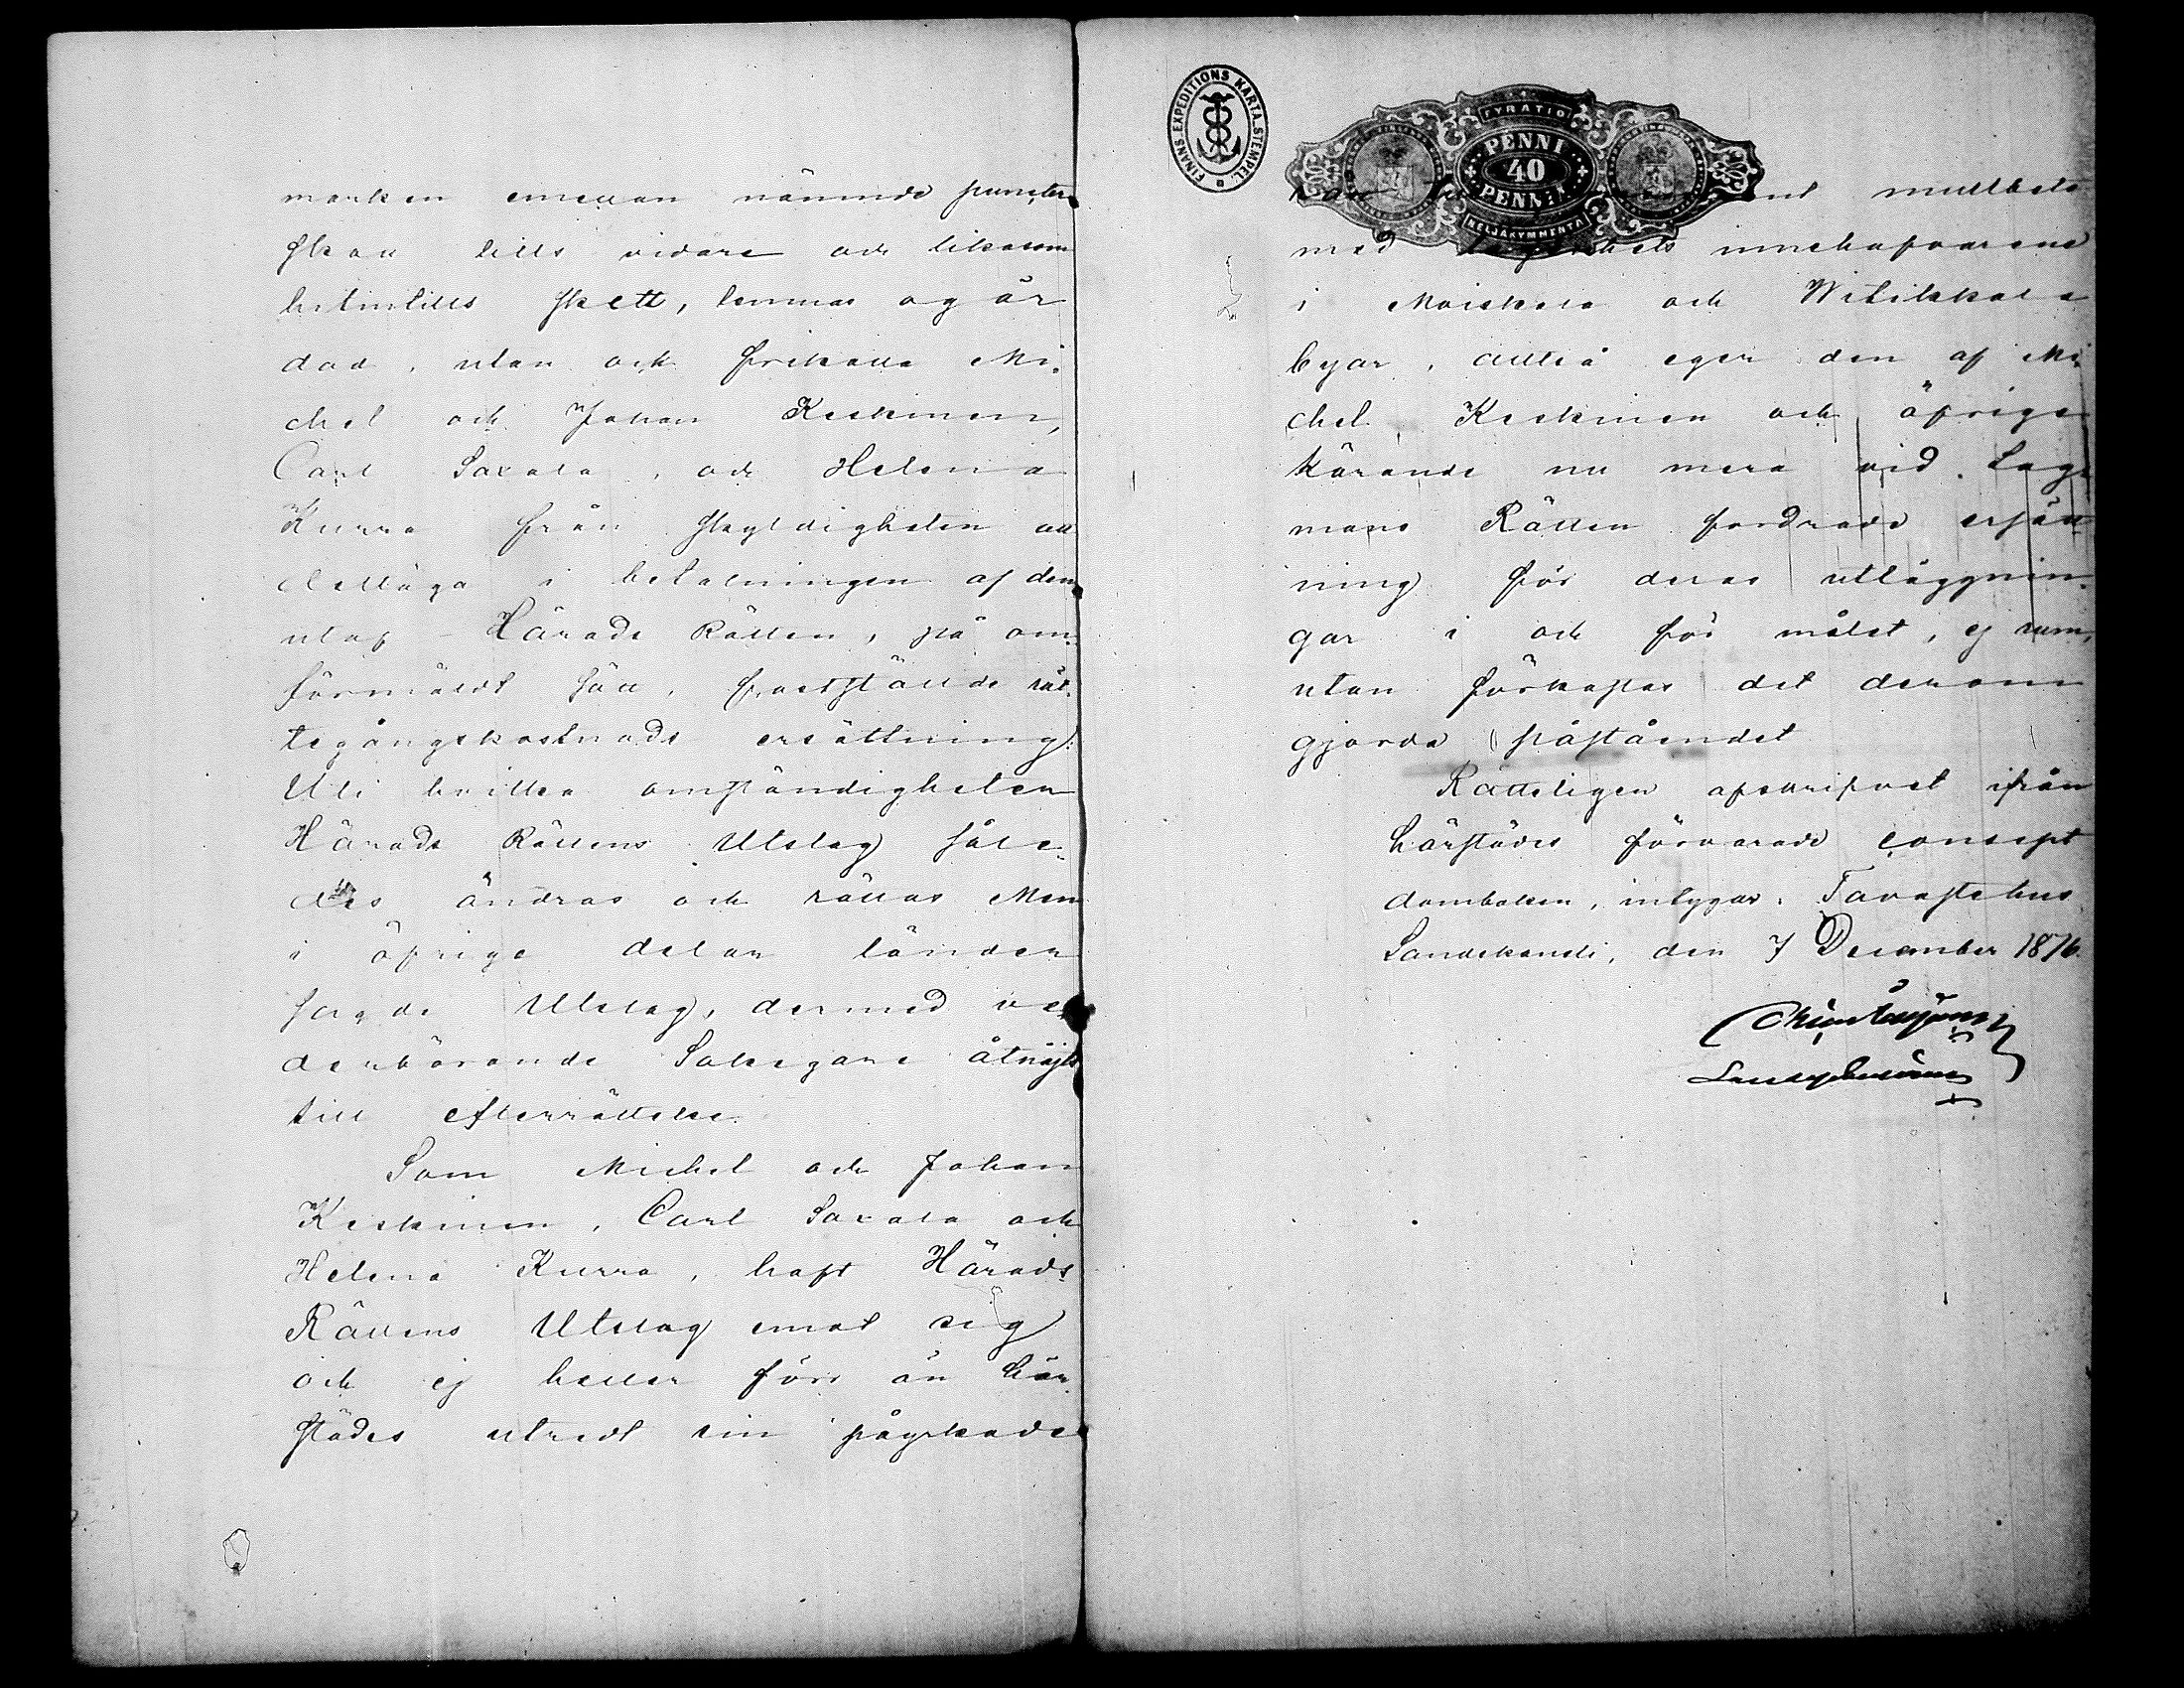 marken emellan nämnde puncter
skall tills vidare och likasom
hitintills skett, lemnas ogär
dad, utan ock frikalla Mi-
chel och Johan Keskinen,
Carl Saxala, och Helena
Kurra från skyldigheten att
deltaga i betalningen af den
utaf Härads Rätten, på om-
förmäldt sätt, fastställde rät-
tegångskostnads ersättning:
Uti hvilka omständigheter
Härads Rättens Utslag såle-
des ändras och rättas Men
i öfrige delar länder
sagde Utslag, dermed ve-
derbörande Sakegare åtnöjts
till efterrättelse.
Som Michel och Johan
Keskinen, Carl Saxala och
Helena Kurra, haft Härads
Rättens Utslag emot sig
och ej heller förr än här-
städes utredt sin påyrkade
FINANS EXPEDITIONS KARTA. STEMPEL.
FYRATIO
PENNI
40
PENNIÄ
NELJÄKYMMENTÄ
med innehafvarene
i Moiskala och Witikkala
byar, alltså eger den af Mi-
chel Keskinen och öfrige
kärande nu mera vid Lag-
mans Rätten fordrade ersätt-
ning för deras utläggnin-
gar i och för målet, ej rum,
utan förkastas det derom
gjorda påståendet
Rätteligen afskrifvet ifrån
härstädes förvarade concept
domboken, intygar. Tavastehus
Landskansli, den 7 December 1876.